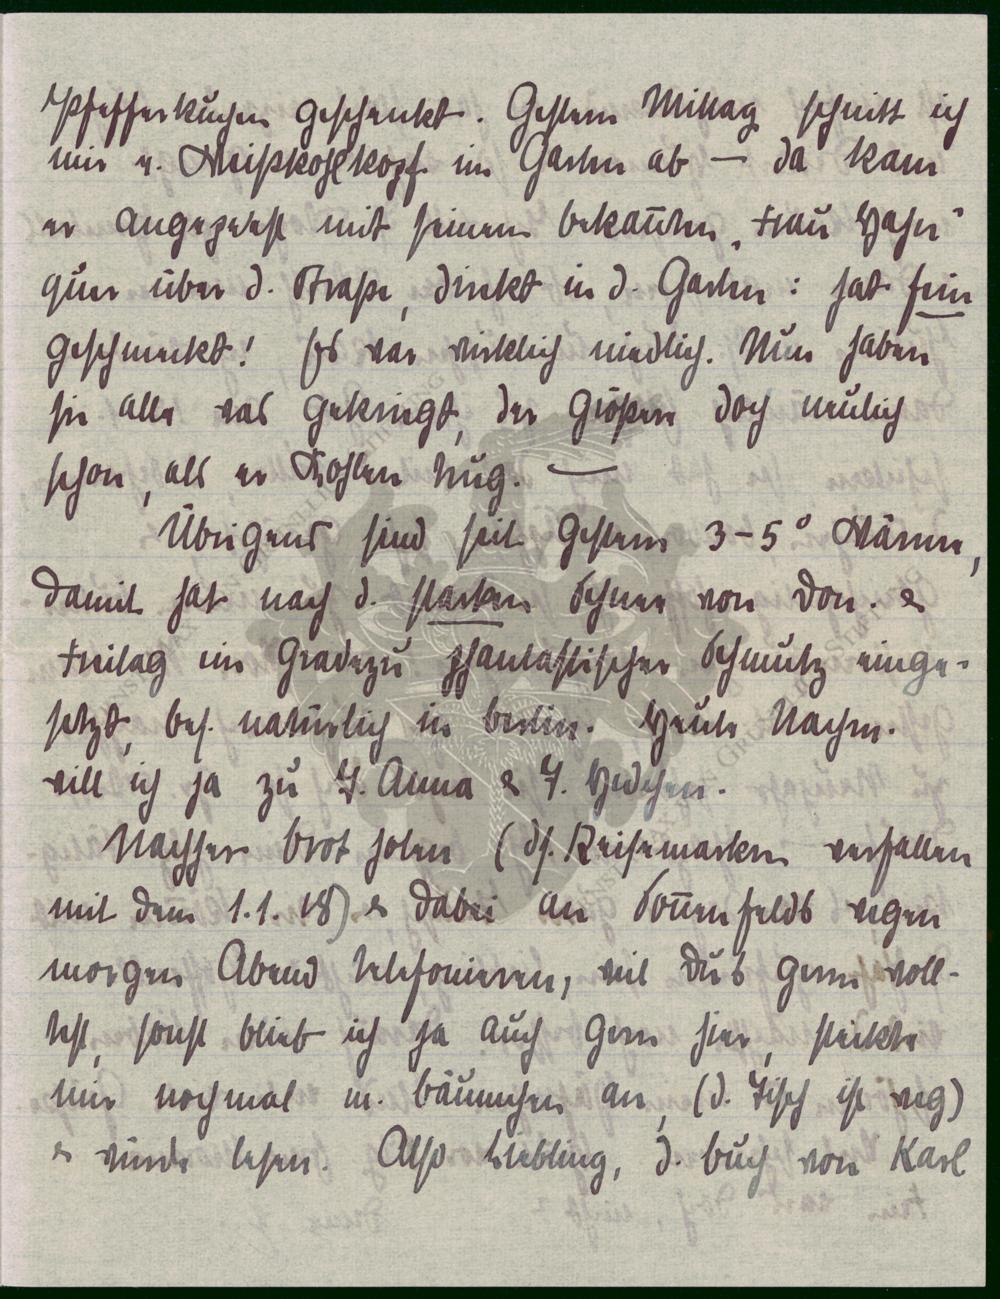 Pfefferkuchen geschenkt. Gestern Mittag schnitt ich
mir e. Weißkohlkopf im Garten ab — da kam
er angepest mit seinem bekannten „Frau Hahn"
quer über d. Straße, direkt in d. Garten: hat fein
geschmeckt! Es war wirklich niedlich. Nun haben
sie alle was gekriegt, der Größere doch neulich
schon, als er Kohlen trug. —
Übrigens sind seit gestern 3-5° Wärme,
damit hat nach d. starken Schnee von Don. &
Freitag ein gradezu phantastischer Schmutz einge-
setzt, bes. natürlich in Berlin. Heute Nachm.
will ich ja zu T. Anna & T. Hedchen.
Nachher Brot holen (ds. Reisemarken verfallen
mit dem 1.1.18) & dabei an Sonnenfelds wegen
morgen Abend telefonieren, weil Du's gern woll-
test, sonst blieb ich ja auch gern hier, steckte
mir nochmal m. Bäumchen an, (d. Tisch ist weg)
& würde lesen. Also Liebling, d. Buch von Karl